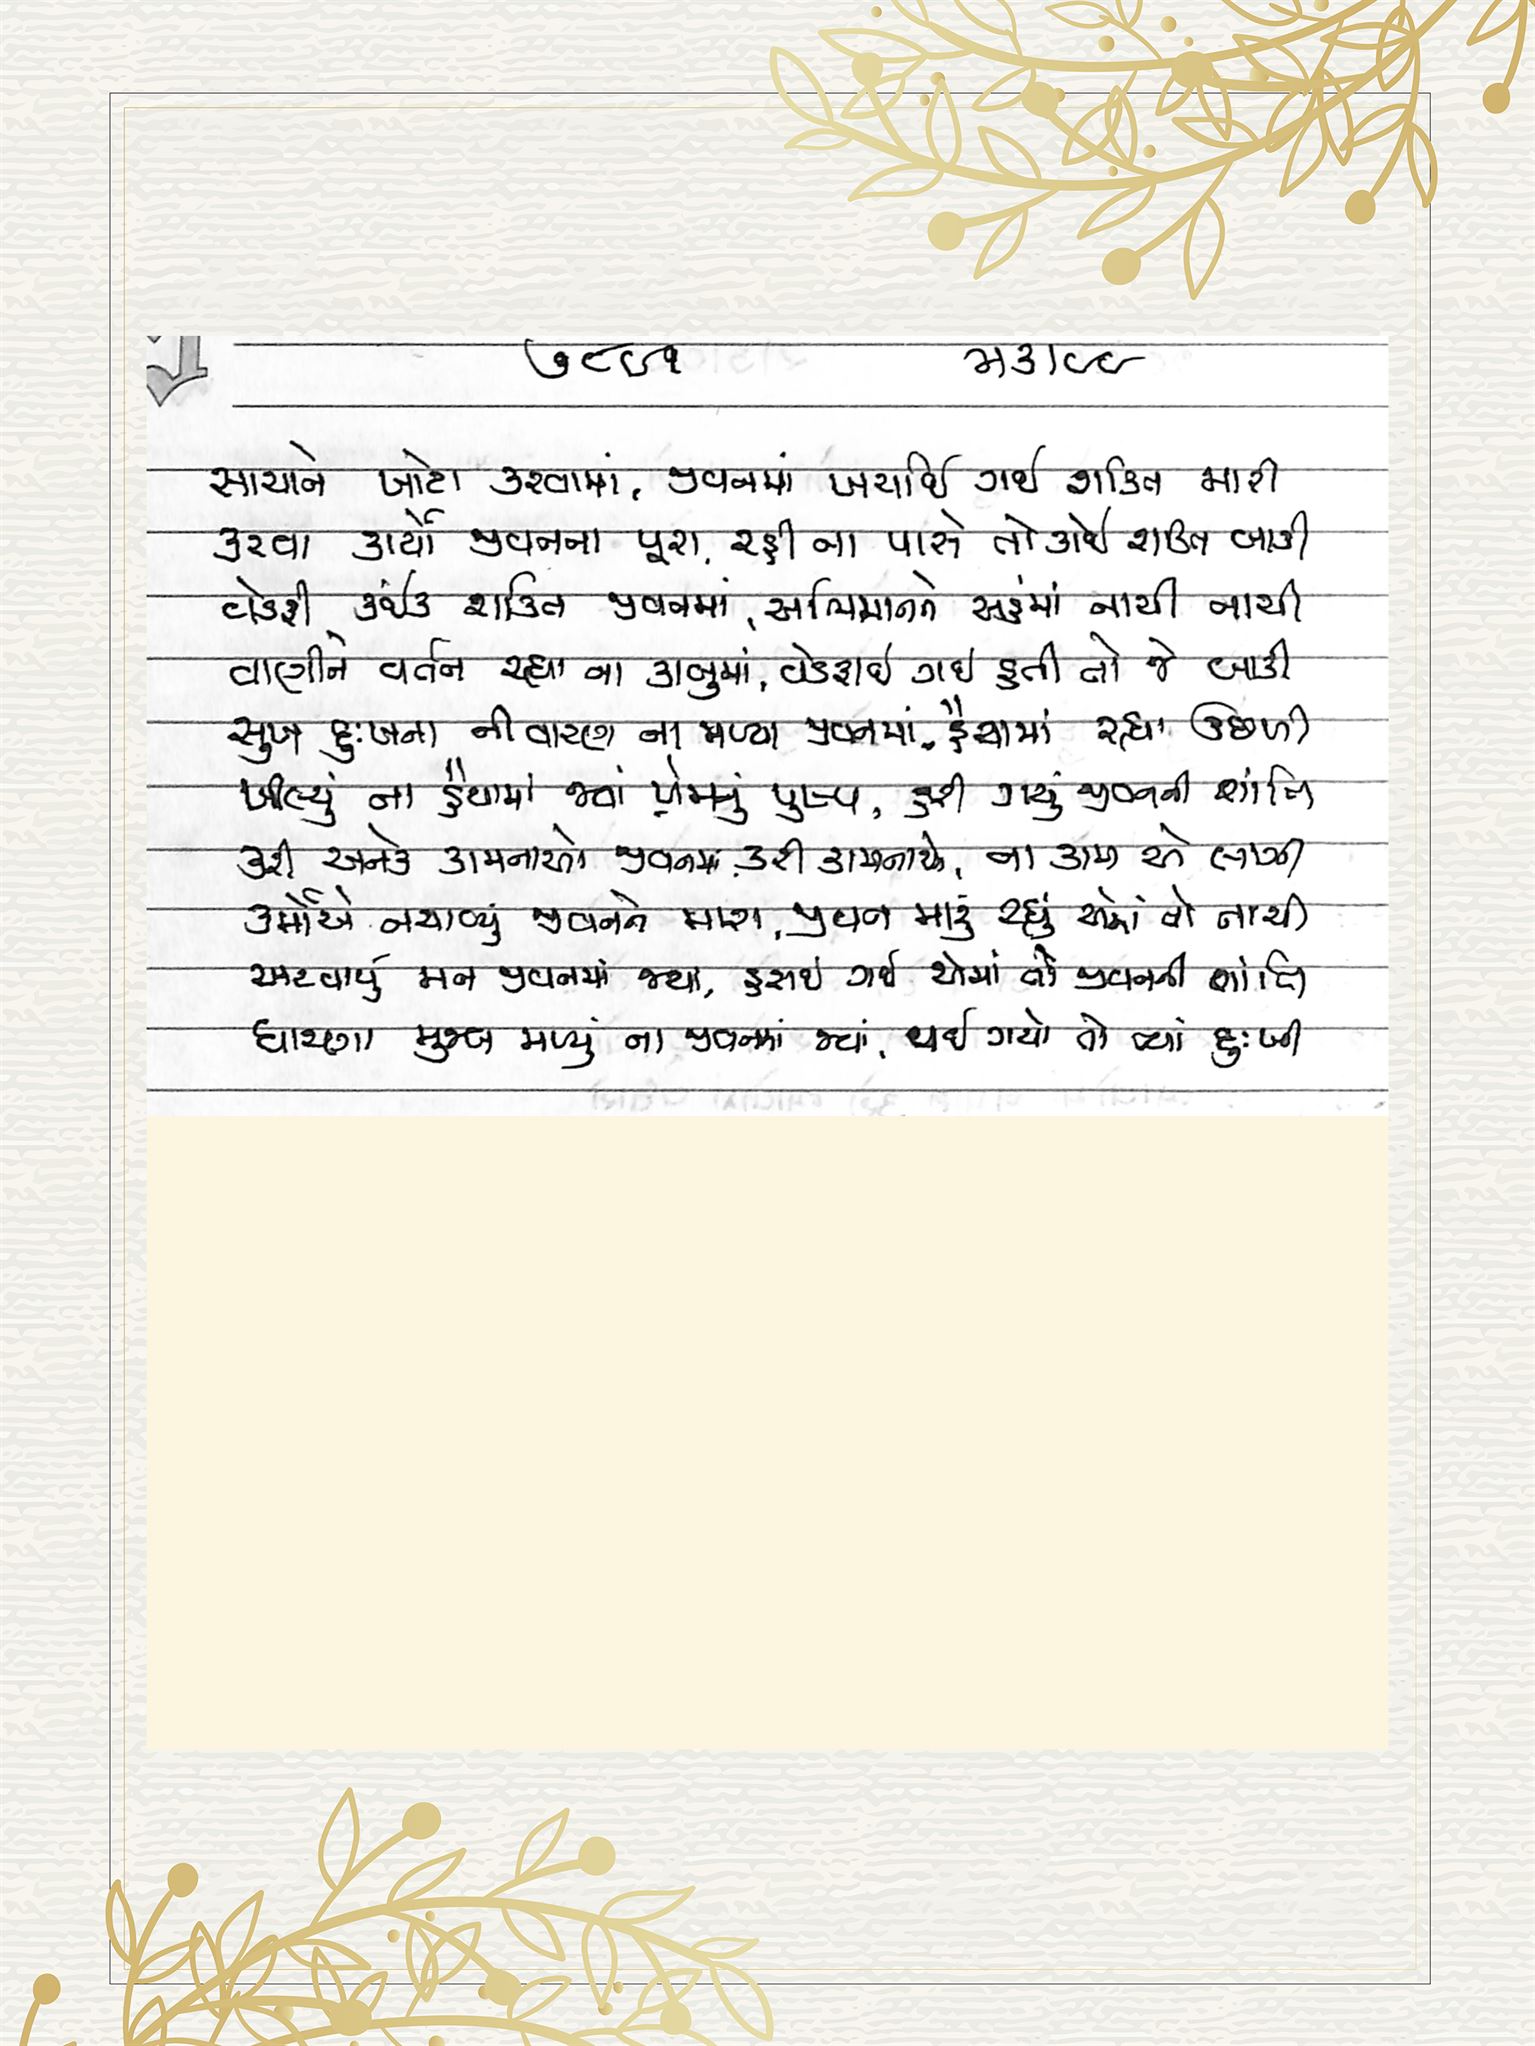 ૭૯૬૧ મકા૮૮
સાચાને ખોટા કરવામાં, જીવનમાં ખર્ચાઈ ગઈ શક્તિ મારી
કરવા કાર્યો જીવનના પૂરા, રહી ના પાસે તો કોઈ શક્તિ બાકી
વેડફી કંઈક શક્તિ જીવનમાં, અભિમાનને અહંમાં નાચી નાચી
વાણીને વર્તન રહ્યા ના કાબુમાં, વેડફાઈ ગઈ હતી તો જે બાકી
સુખ દુઃખના નીવારણ ના મળ્યા જીવનમાં, હૈયામાં રહ્યા ઉછળી
ખીલ્યું ના હૈયામાં જ્યાં પ્રેમનું પુષ્પ, હરી ગયું જીવનની શાંતિ
કરી અનેક કામનાઓ જીવનમાં કરી કામનાઓ, ના કામ એ લાગી
કર્મોએ નચાવ્યું જીવનને મારા, જીવન મારું રહ્યું એમાં તો નાચી
અટવાયું મન જીવનમાં જ્યાં, હરાઈ ગઈ એમાં તો જીવનની શાંતિ
ધારણા મુજબ મળ્યું ના જીવનમાં જ્યાં, થઈ ગયો તો ત્યાં દુઃખી